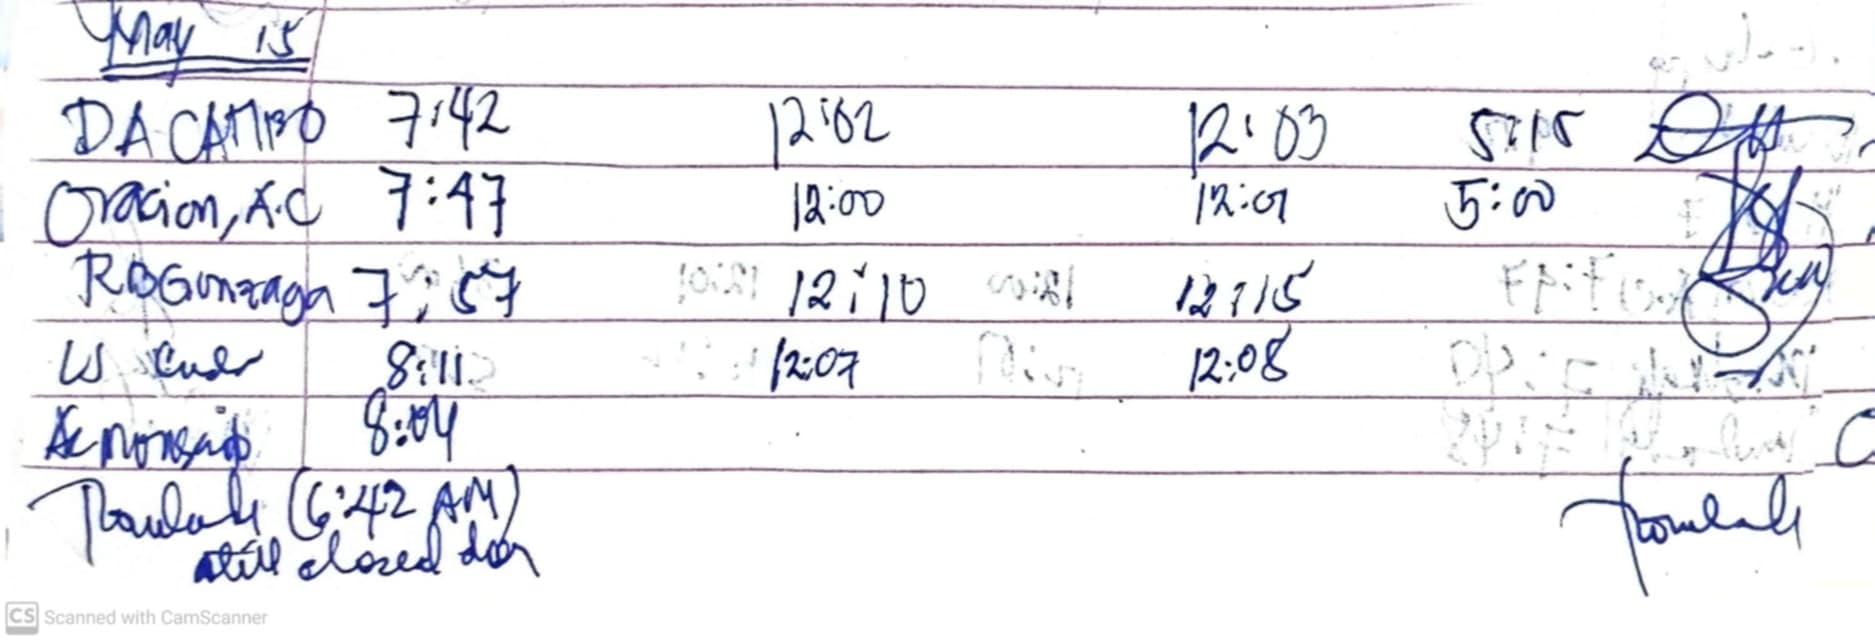 May 15
DACAMPO 7:42 12:02 12:03 5:15
Oracion, A.C 7:47 12:00 12:01 5:00
RBGonzaga 7:57 12:10 12:15
8:11 12:07 12:08
8:04
(6:42 AM)
still closed door
CS Scanned with CamScanner